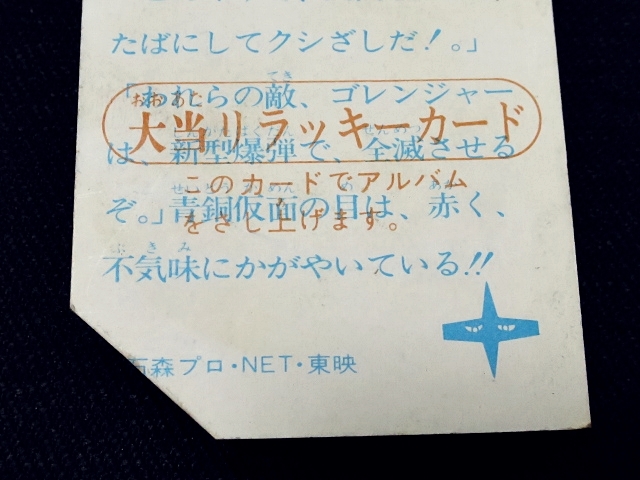 たばにしてクシざしだ！。」
「われらの敵、ゴレンジャー
は、新型爆弾で、全滅させる
ぞ。」青銅仮面の目は、赤く、
不気味にかがやいている!!
おおあたり
大当りラッキーカード
このカードでアルバム
をさし上げます。
石森プロ・NET・東映